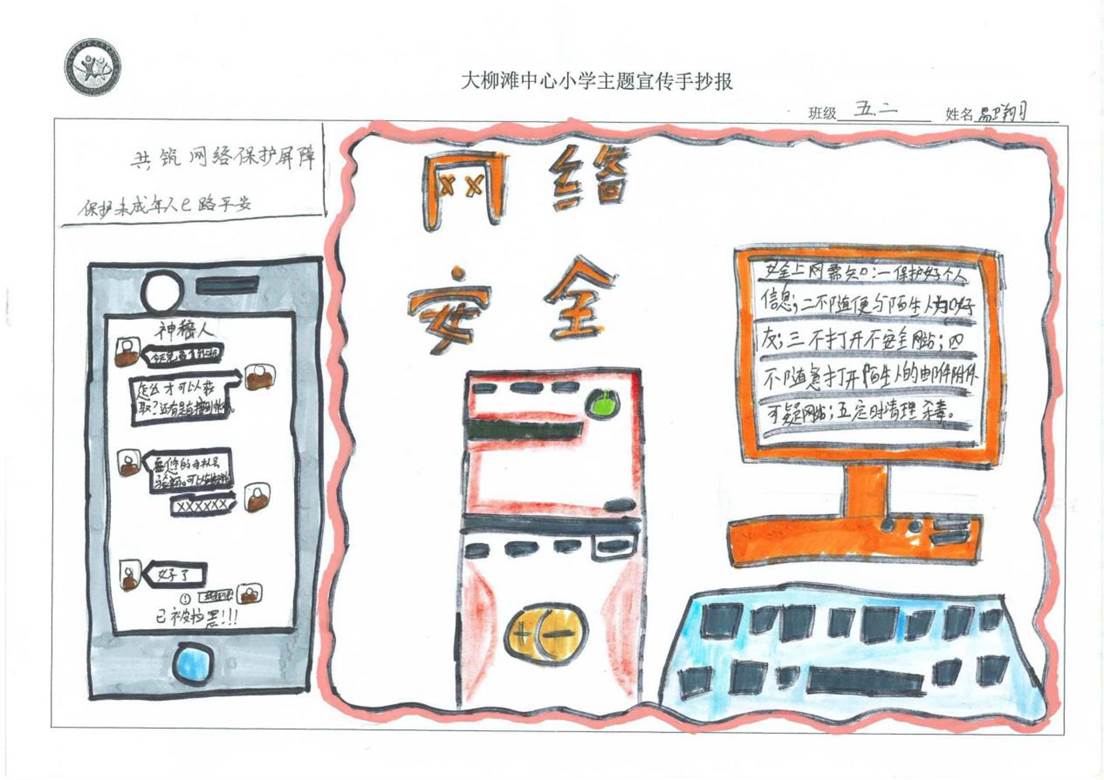 大柳滩中心小学主题宣传手抄报
班级 五.二 姓名
共筑网络保护屏障
保护未成年人e路平安
网络
安全
神秘人
怎么才可以获
取?还有
XXXXXX
好了
已被拉黑!!!
安全上网需知:一保护好个人
信息;二不随便与陌生人为好
友;三不打开不安全网站;四
不随意打开陌生人的邮件附件
可疑网站;五定时清理杀毒。